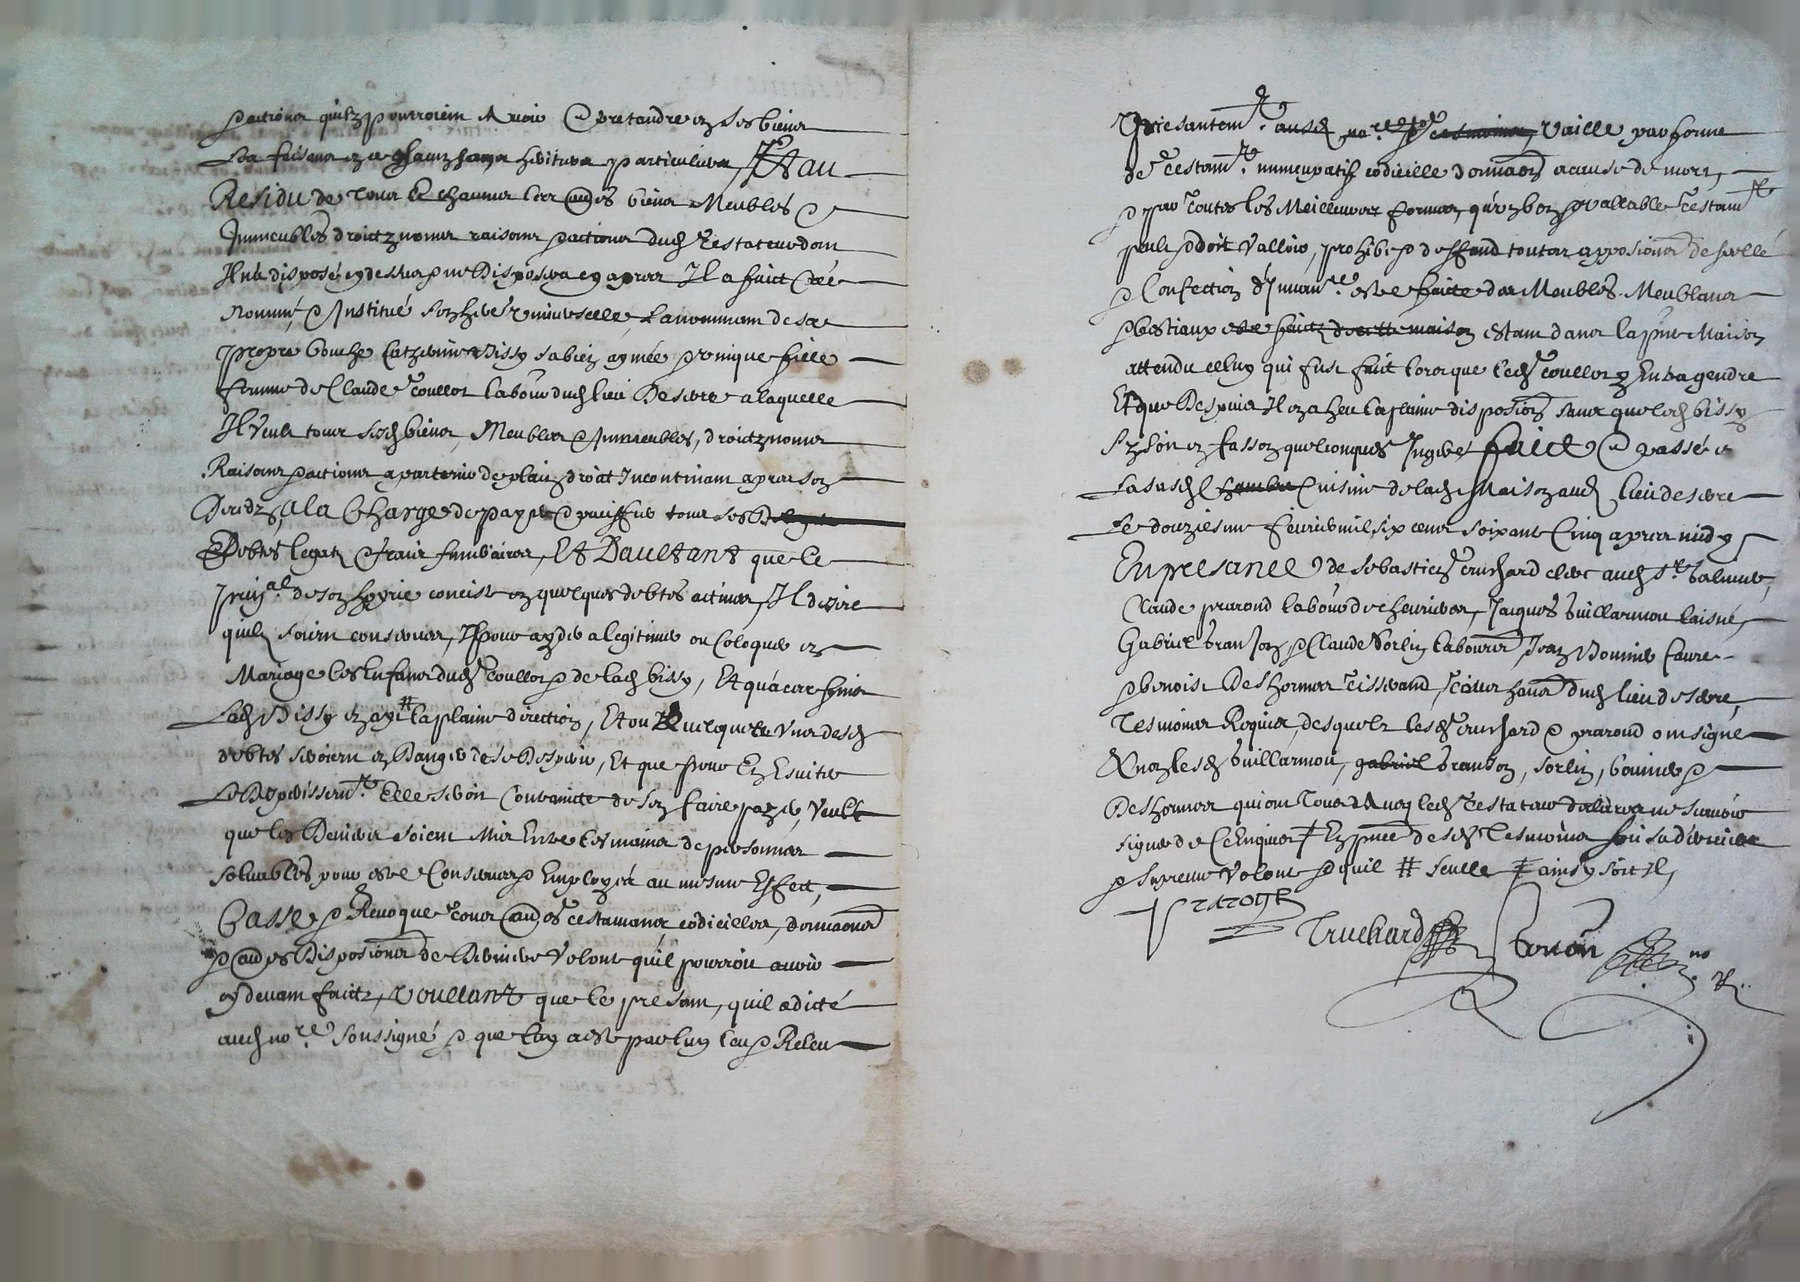 & actions quilz pourroient avoir & pretandre en ses biens
La faisant en ce ses heritiere particuliere, Et au
Residu de tous & chacuns les aures biens Meubles &
Immeubles droictz noms raisons & actions dud. testateur dont
Il n'a disposé cy dessus & ne disposera cy apres Il a faict créé
nommé & Institué son here. universelle, la nommant de sa
propre bouche Catherine Bissy sa bien aymée & unique fille
femme de Claude Coullot labour. dud. lieu De sivre a laquelle
Il Veult tous sesd. biens, Meubles & Immeubles, droictz noms
Raisons & actions apartenir de plain droict Incontinant apres son
deceds, A la Charge de payer & suiffre tous ses
Debtes legatz & frais funeraires, Et Daultant que le
prin.al de son hoyrie conciste en quelques debtes actives, Il desire
quilz soient conserves, pour ayder a legitimer ou Coloquer en
Mariage les Enfans dud. Coullot & de lad. bissy, Et qua ces fins
Lad. Bissy en aye # la plaine direction, Et ou quelques Unes desd.
debtes seroient en Danger de se Desperir, Et que pour En Esviter
Le Deperissem.t Elle seroit Contrainte de sen faire payer, Veult
que les Deniers soient Mis Entre les mains de personnes
soluables pour estre Conserves & Employés au mesme Effect,
Casse & Revoque tous aures testamans, codicilles, donnaons
& aures Disposions de Derniere Volonté qu'il pourroit avoir
cy devant faictz, Voullant que le presant, quil a dicté
aud. no.re soussigné & que luy a esté par luy leu & Releu
presantem.t aud. no.re Vaille par forme
de testam.t nuncupatif codicille donnaon a cause de mort,
& par toutes les Meilleures formes, qu'un bon & vallable testam.t
peult & doit Valloir, prohibe & deffend toutes apposions de scellé
& Confection d'Invan.re estre faicte des Meubles Meublans
& bestiaux estre faictz de cette maison estant dans la pnte Maison
attendu celluy qui fust faict lors que led. Coullot y Entra gendre
Et que Despuis Il en a heu la plaine disposion sans que led. bissy
sen soit en fasson quelconques Ingeré faict & passé a
La susd. chambre Cuisine de lad. Maison aud. lieu de sivre
Le douziesme febvrier mil six cens soixante Cinq apres midy
En presance de sebastien Truchard clerc aud.
Claude prarond labour. de cheuriere, Jacques Vuillarmou laisné,
Gabriel branson & Claude Sorlin labourrs, Jean Bonnier Caure
& benoist Deshormes tisserand, tous hans dud. lieu de sivre,
Tesmoins Requis, desquelz lesd. Truchard & prarond ont signé
& non lesd. Vuillarmou, gabriel branson, sorlin, bonnier &
Deshormes qui ont Tous avec led. testateur declaré ne scavoir
signer de ce Enquis # En pnce desd. tesmoins son sa derniere
& supreme Volonté & quil # seulle # ainsy soit Il,
Prarond
Truchard
no.re R.